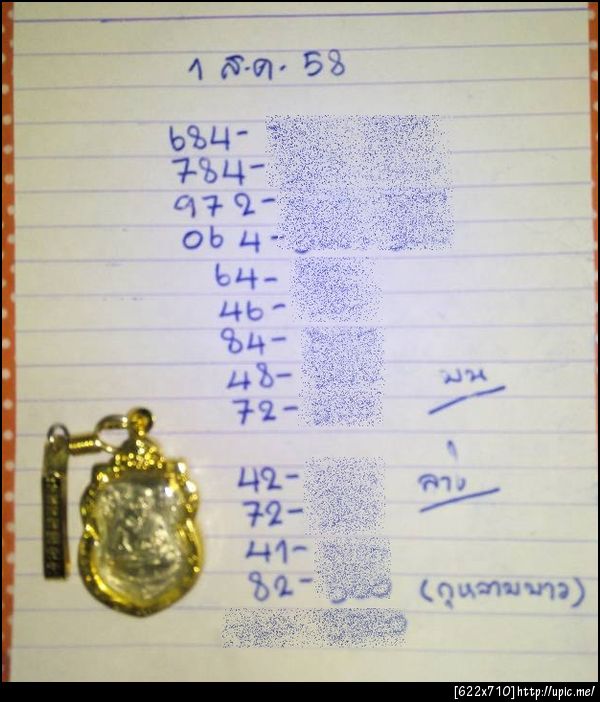 1 ส.ค. 58
684-
784-
972-
064-
64-
46-
84-
48-
72-
บน
42-
ล่าง
72-
41-
82- (กุหลาบขาว)
[622x710]http://upic.me/